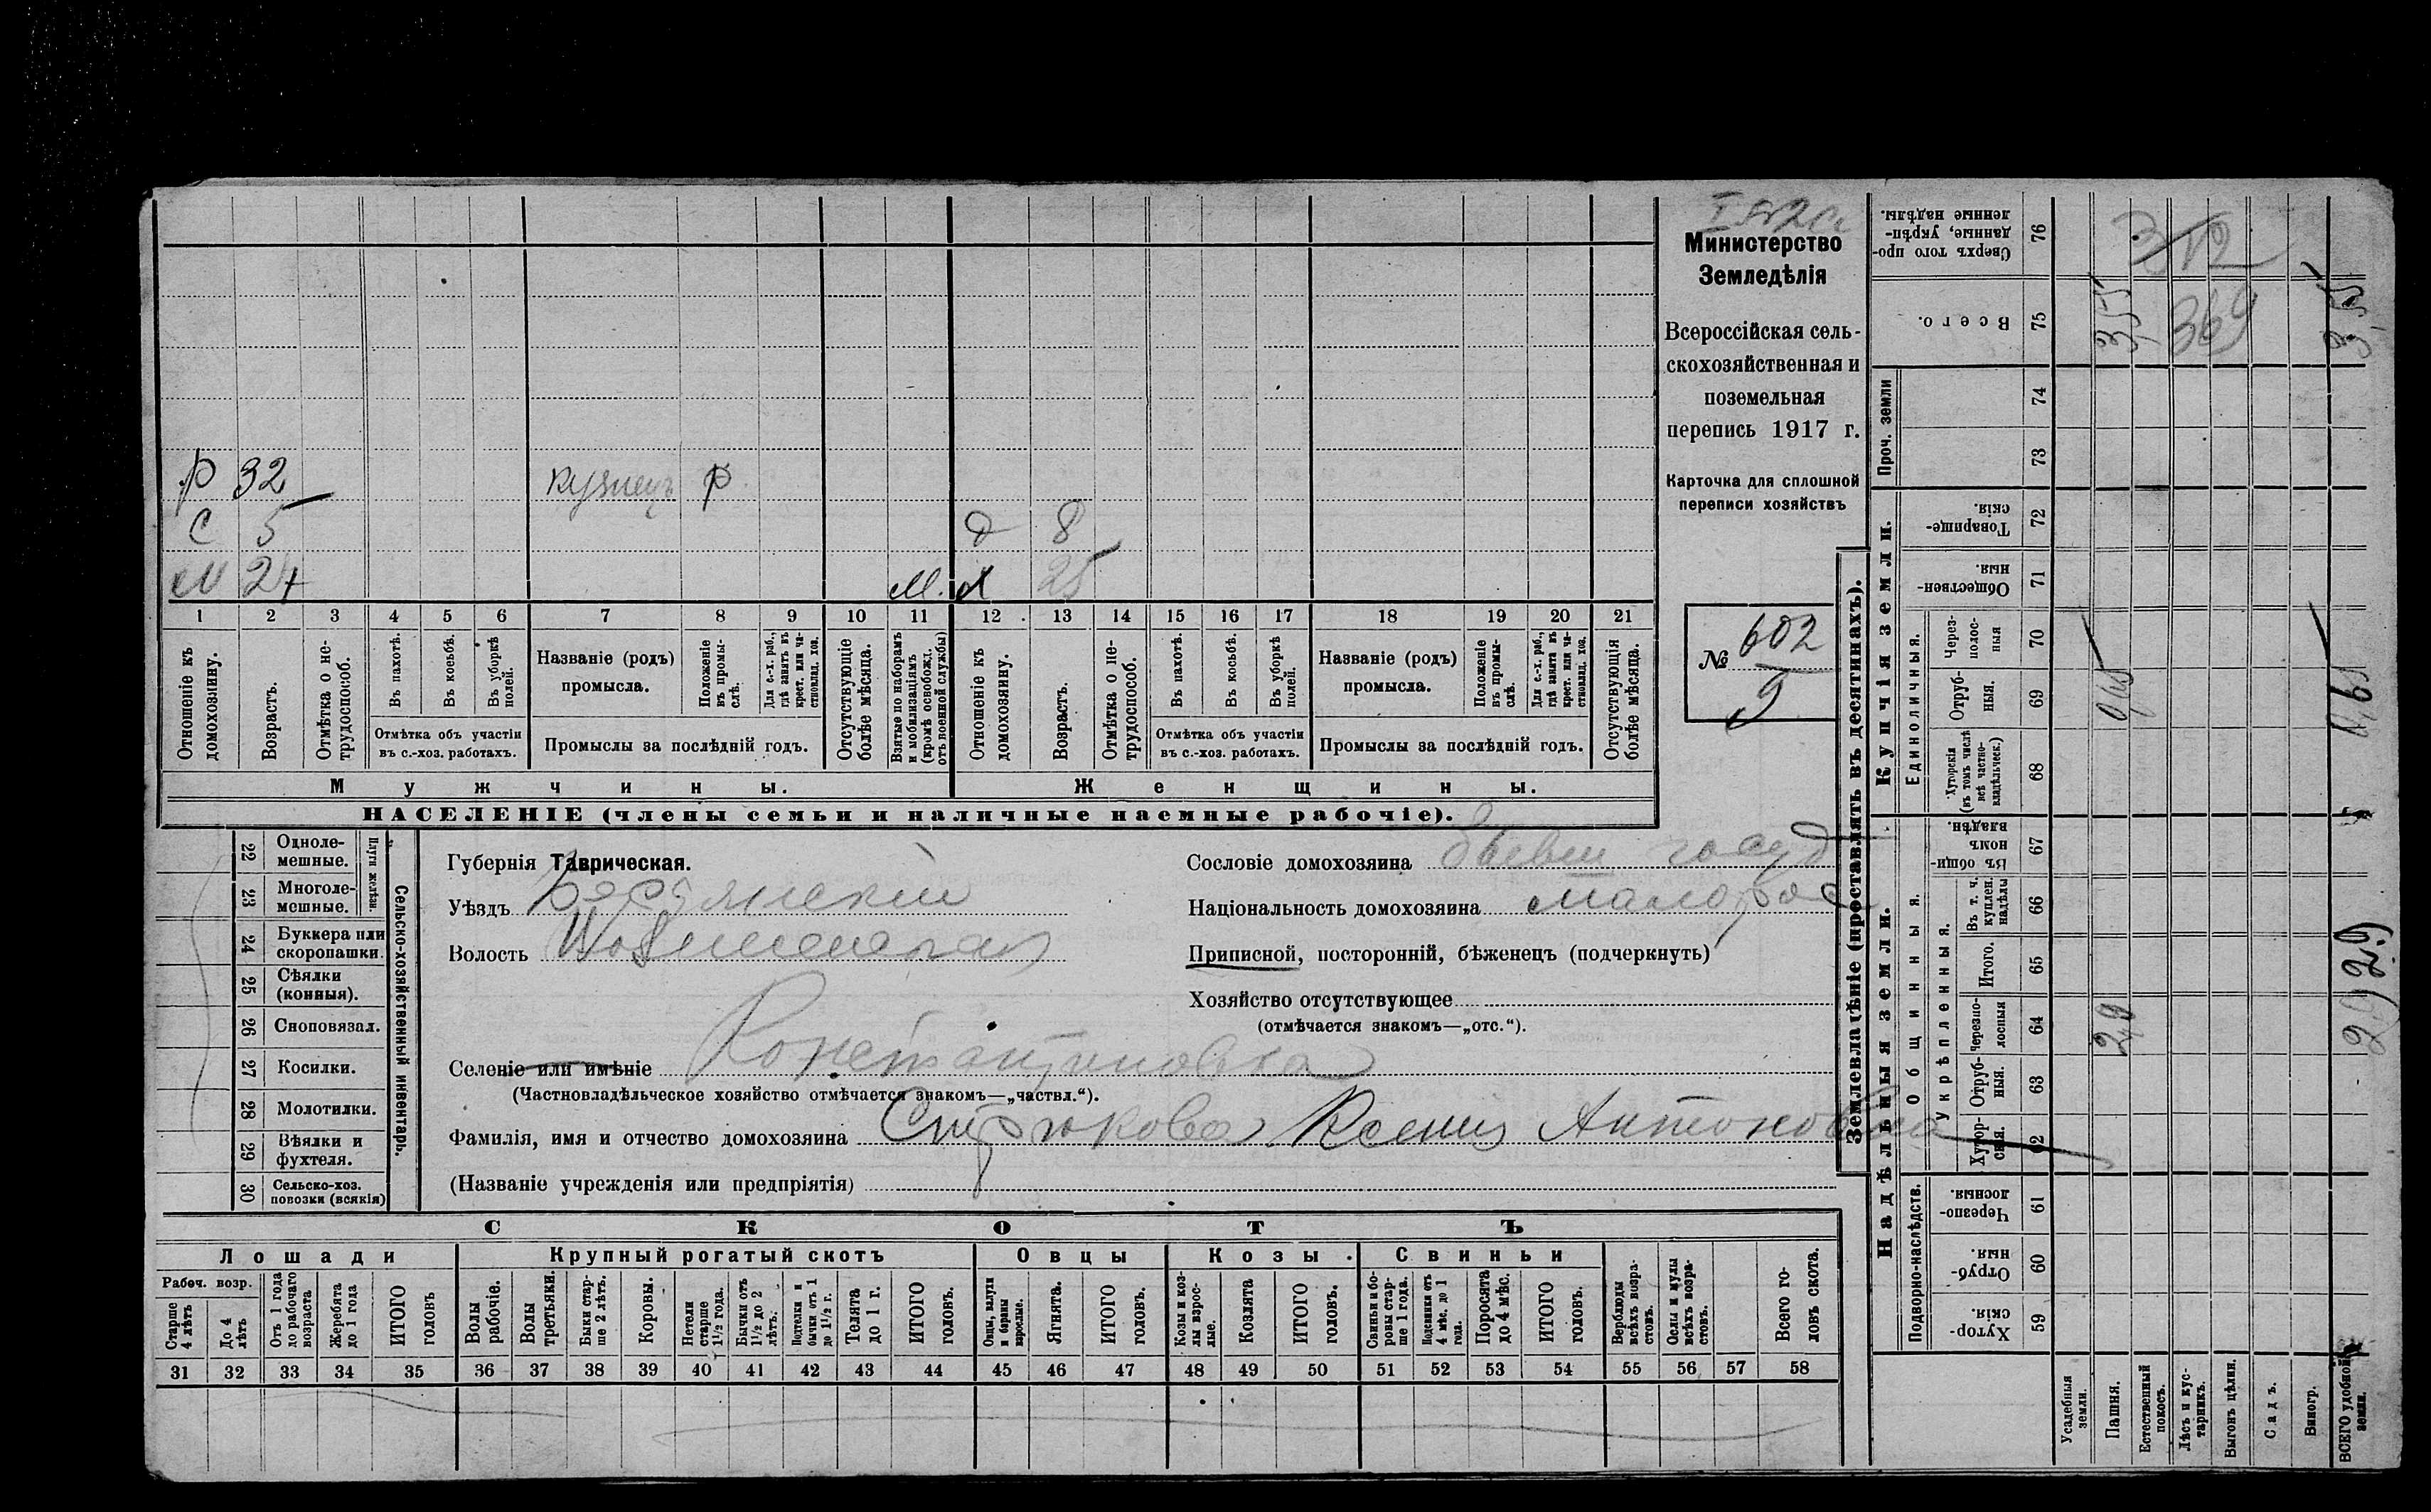 Министерство
Земледѣлія
Всероссійская сель-
скохозяйственная и
поземельная
перепись 1917 г.
Карточка для сплошной
переписи хозяйствъ
№ 602
Р 32 кузнецъ Р
С 5 д 8
М 2 М. 25
1 2 3 4 5 6 7 8 9 10 11 12 13 14 15 16 17 18 19 20 21
Отношеніе къ домохозяину.
Возрастъ.
Отмѣтка о не-трудоспособ.
Въ пахотѣ.
Въ косьбѣ.
Въ уборкѣ полей.
Отмѣтка объ участіи
въ с.-хоз. работахъ.
Названіе (родъ)
промысла.
Положеніе въ промы-слѣ.
Для с.-х. раб., гдѣ занятъ въ крест. или ча-стновлад. хоз.
Промыслы за послѣдній годъ.
Отсутствующіе болѣе мѣсяца.
Взятые по наборамъ и мобилизаціямъ (кромѣ освобожд. отъ военной службы)
Отношеніе къ домохозяину.
Возрастъ.
Отмѣтка о не-трудоспособ.
Въ пахотѣ.
Въ косьбѣ.
Въ уборкѣ полей.
Отмѣтка объ участіи
въ с.-хоз. работахъ.
Названіе (родъ)
промысла.
Положеніе въ промы-слѣ.
Для с.-х. раб., гдѣ занята въ крест. или ча-стновлад. хоз.
Промыслы за послѣдній годъ.
Отсутствующія болѣе мѣсяца.
Мужчины.
Женщины.
НАСЕЛЕНІЕ (члены семьи и наличные наемные рабочіе).
Сельско-хозяйственный инвентарь.
Плуги желѣзн.
22 Одноле-мешные.
23 Многоле-мешные.
24 Буккера или скоропашки.
25 Сѣялки (конныя).
26 Сноповязал.
27 Косилки.
28 Молотилки.
29 Вѣялки и фухтеля.
30 Сельско-хоз. повозки (всякія)
Губернія Таврическая.
Уѣздъ Бердянскій
Волость
Селеніе или имѣніе Константиновка
(Частновладѣльческое хозяйство отмѣчается знакомъ—„частвл.“).
Фамилія, имя и отчество домохозяина Ксенія Антоновна
(Названіе учрежденія или предпріятія)
Сословіе домохозяина бывш госуд
Національность домохозяина малорос
Приписной, посторонній, бѣженецъ (подчеркнуть)
Хозяйство отсутствующее
(отмѣчается знакомъ—„отс.“).
СКОТЪ
Лошади
Крупный рогатый скотъ
Овцы
Козы.
Свиньи
Рабоч. возр.
Старше 4 лѣтъ
До 4 лѣтъ
Отъ 1 года до рабочаго возраста
Жеребята до 1 года
ИТОГО головъ
Волы рабочіе.
Волы третьяки.
Быки стар-ше 2 лѣтъ.
Коровы.
Нетели старше 1½ года.
Бычки отъ 1½ до 2 лѣтъ.
Подтелки и бычки отъ 1 до 1½ г.
Телята до 1 г.
ИТОГО головъ.
Овцы, валухи и бараны взрослые.
Ягнята.
ИТОГО головъ.
Козы и коз-лы взрос-лые.
Козлята
ИТОГО головъ.
Свиньи и бо-ровы стар-ше 1 года.
Подсвинки отъ 4 мѣс. до 1 года.
Поросята до 4 мѣс.
ИТОГО головъ.
Верблюды всѣхъ возра-стовъ.
Ослы и мулы всѣхъ возра-стовъ.
Всего го-ловъ скота.
31 32 33 34 35 36 37 38 39 40 41 42 43 44 45 46 47 48 49 50 51 52 53 54 55 56 57 58
Землевладѣніе (проставлять въ десятинахъ).
Надѣльныя земли.
Купчія земли.
Проч. земли
Подворно-наслѣдств.
Общинныя.
Укрѣпленныя.
Единоличныя.
Хутор-скія 59
Отруб-ныя. 60
Черезпо-лосныя. 61
Хутор-скія. 62
Отруб-ныя. 63
Черезпо-лосныя 64
Итого. 65
Въ т. ч. куплен. надѣлы 66
Въ общин-номъ владѣн. 67
Хуторскія (въ томъ числѣ всѣ частно-владѣльческ.) 68
Отруб-ныя. 69
Через-полос-ныя 70
Обществен-ныя. 71
Товарище-скія. 72
73
74
Всего. 75
Сверхъ того про-данные, укрѣп-ленные надѣлы. 76
Усадебныя земли.
Пашня. 2,9 3,55
Естественный покосъ.
Лѣсъ и кус-тарникъ.
Выгонъ цѣлин.
Садъ.
Виногр.
ВСЕГО удобной земли. 2,9 3,55
369